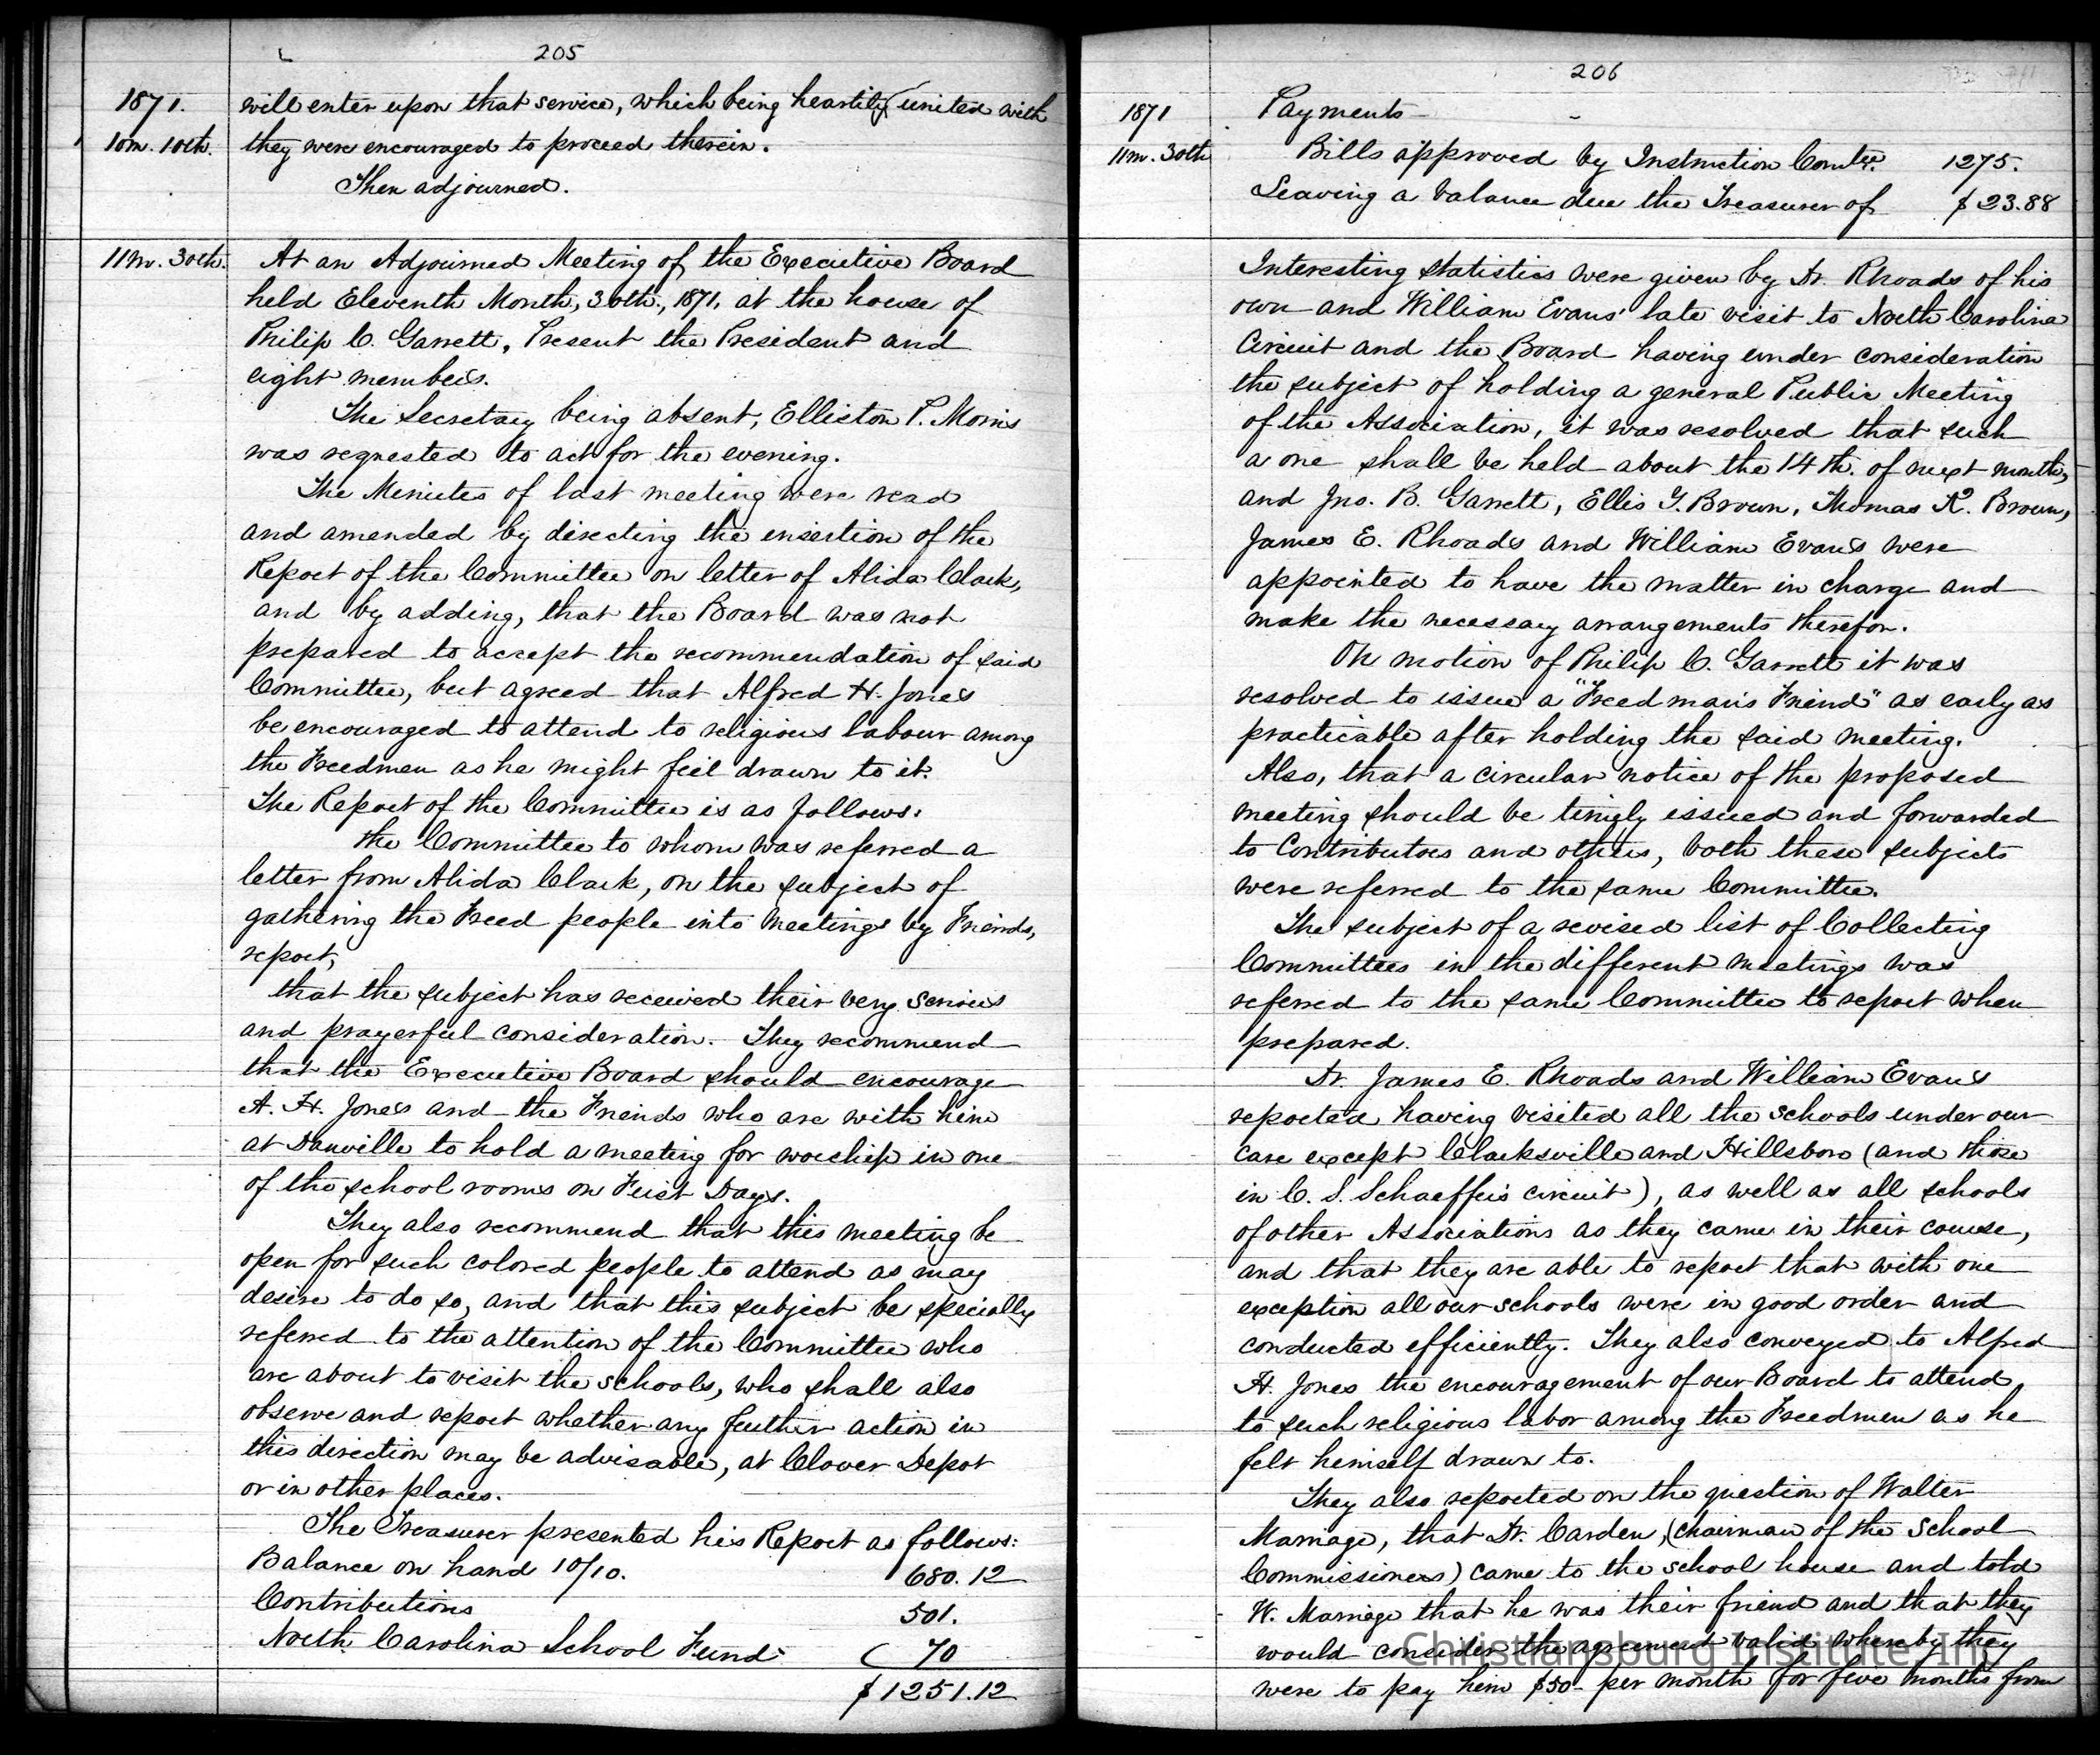 205
1871.
will enter upon that service, which being heartily united with
10m. 10th.
they were encouraged to proceed therein.
Then adjourned.
11m. 30th.
At an Adjourned Meeting of the Executive Board
held Eleventh Month, 30th., 1871, at the house of
Philip C. Garrett, Present the President and
eight members.
The Secretary being absent, Elliston P. Morris
was requested to act for the evening.
The Minutes of last meeting were read
and amended by directing the insertion of the
Report of the Committee on letter of Alida Clark,
and by adding, that the Board was not
prepared to accept the recommendation of said
Committee, but agreed that Alfred H. Jones
be encouraged to attend to religious labour among
the Freedmen as he might feel drawn to it.
The Report of the Committee is as follows:
The Committee to whom was referred a
letter from Alida Clark, on the subject of
gathering the Freed people into Meetings by Friends,
report,
that the subject has received their very serious
and prayerful consideration. They recommend
that the Executive Board should encourage
A. H. Jones and the Friends who are with him
at Danville to hold a meeting for worship in one
of the school rooms on First Days.
They also recommend that this meeting be
open for such colored people to attend as may
desire to do so, and that this subject be specially
referred to the attention of the Committee who
are about to visit the schools, who shall also
observe and report whether any further action in
this direction may be advisable, at Clover Depot
or in other places.
The Treasurer presented his Report as follows:
Balance on hand 10/10. 680.12
Contributions 501.
North Carolina School Fund 70
$1251.12
206
1871
Payments
11m. 30th
Bills approved by Instruction Comtee. 1275.
Leaving a balance due the Treasurer of $23.88
Interesting statistics were given by Dr. Rhoads of his
own and William Evans' late visit to North Carolina
Circuit and the Board having under consideration
the subject of holding a general Public Meeting
of the Association, it was resolved that such
a one shall be held about the 14th. of next month,
and Jno. B. Garrett, Ellis G. Brown, Thomas K. Brown,
James E. Rhoads and William Evans were
appointed to have the matter in charge and
make the necessary arrangements therefor.
On motion of Philip C. Garrett it was
resolved to issue a "Freedman's Friend" as early as
practicable after holding the said meeting.
Also, that a circular notice of the proposed
meeting should be timely issued and forwarded
to Contributors and others, both these subjects
were referred to the same Committee.
The subject of a revised list of Collecting
Committees in the different meetings was
referred to the same Committee to report when
prepared.
Dr. James E. Rhoads and William Evans
reported having visited all the schools under our
care except Clarksville and Hillsboro (and those
in C. S. Schaeffer's circuit), as well as all schools
of other Associations as they came in their course,
and that they are able to report that with one
exception all our schools were in good order and
conducted efficiently. They also conveyed to Alfred
H. Jones the encouragement of our Board to attend
to such religious labor among the Freedmen as he
felt himself drawn to.
They also reported on the question of Walter
Marriage, that Dr. Carden, (Chairman of the School
Commissioners) came to the school house and told
W. Marriage that he was their friend and that they
would consider the agreement valid whereby they
were to pay him $50 per month for five months from
Christiansburg Institute, Inc.